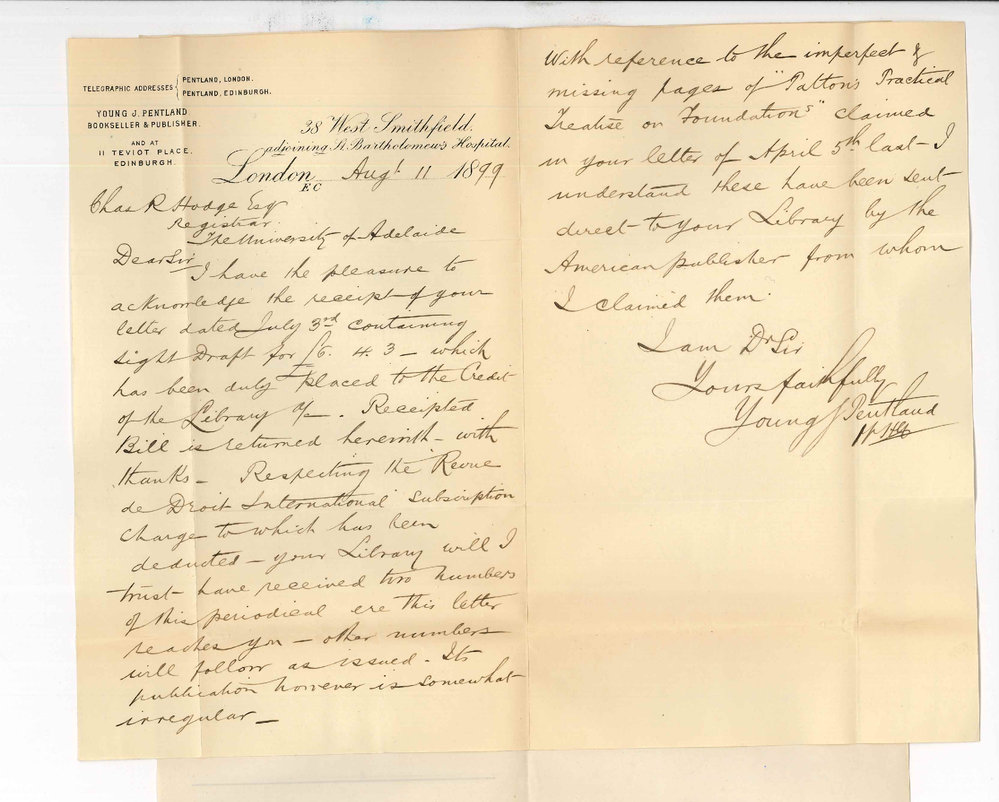 TELEGRAPHIC ADDRESSES { PENTLAND, LONDON.
PENTLAND, EDINBURGH.
YOUNG J. PENTLAND
BOOKSELLER & PUBLISHER.
AND AT
11 TEVIOT PLACE,
EDINBURGH.
38 West Smithfield.
adjoining St. Bartholomew's Hospital.
London Augt 11 1899
EC
Chas R Hodge Esq
Registrar
The University of Adelaide
Dear Sir
I have the pleasure to
acknowledge the receipt of your
letter dated July 3rd containing
sight Draft for £6. 4. 3 – which
has been duly placed to the Credit
of the Library a/c. Receipted
Bill is returned herewith – with
thanks – Respecting the "Revue
de Droit International" subscription
charge to which has been
deducted – your Library will I
trust – have received two numbers
of this periodical ere this letter
reaches you – other numbers
will follow as issued – Its
publication however is somewhat
irregular –
With reference to the imperfect &
missing pages of "Patton's Practical
Treatise on Foundations" claimed
in your letter of April 5th last – I
understand these have been sent
direct to your Library by the
American publisher from whom
I claimed them.
I am Dr Sir
Yours faithfully
Young J Pentland